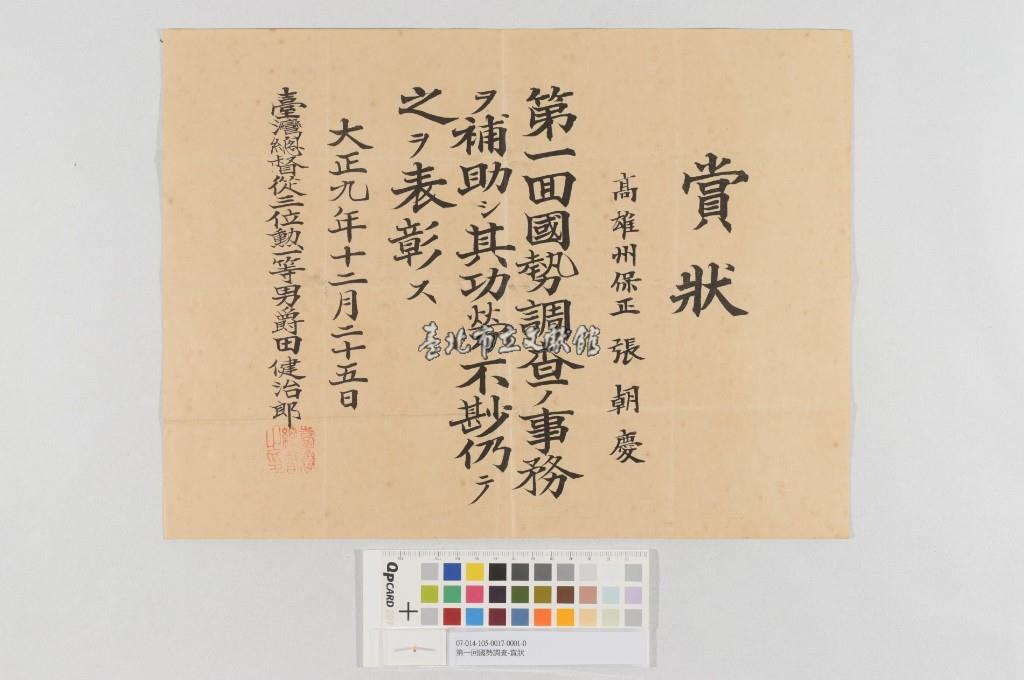 賞狀
高雄州保正 張朝慶
第一囬國勢調查ノ事務
ヲ補助シ其功勞不尠仍テ
之ヲ表彰ス
大正九年十二月二十五日
臺灣總督從三位勲一等男爵田健治郎
臺灣總督之印
臺北市立文獻館
QPCARD 201
07-014-105-0017-0001-0
第一回國勢調查-賞狀